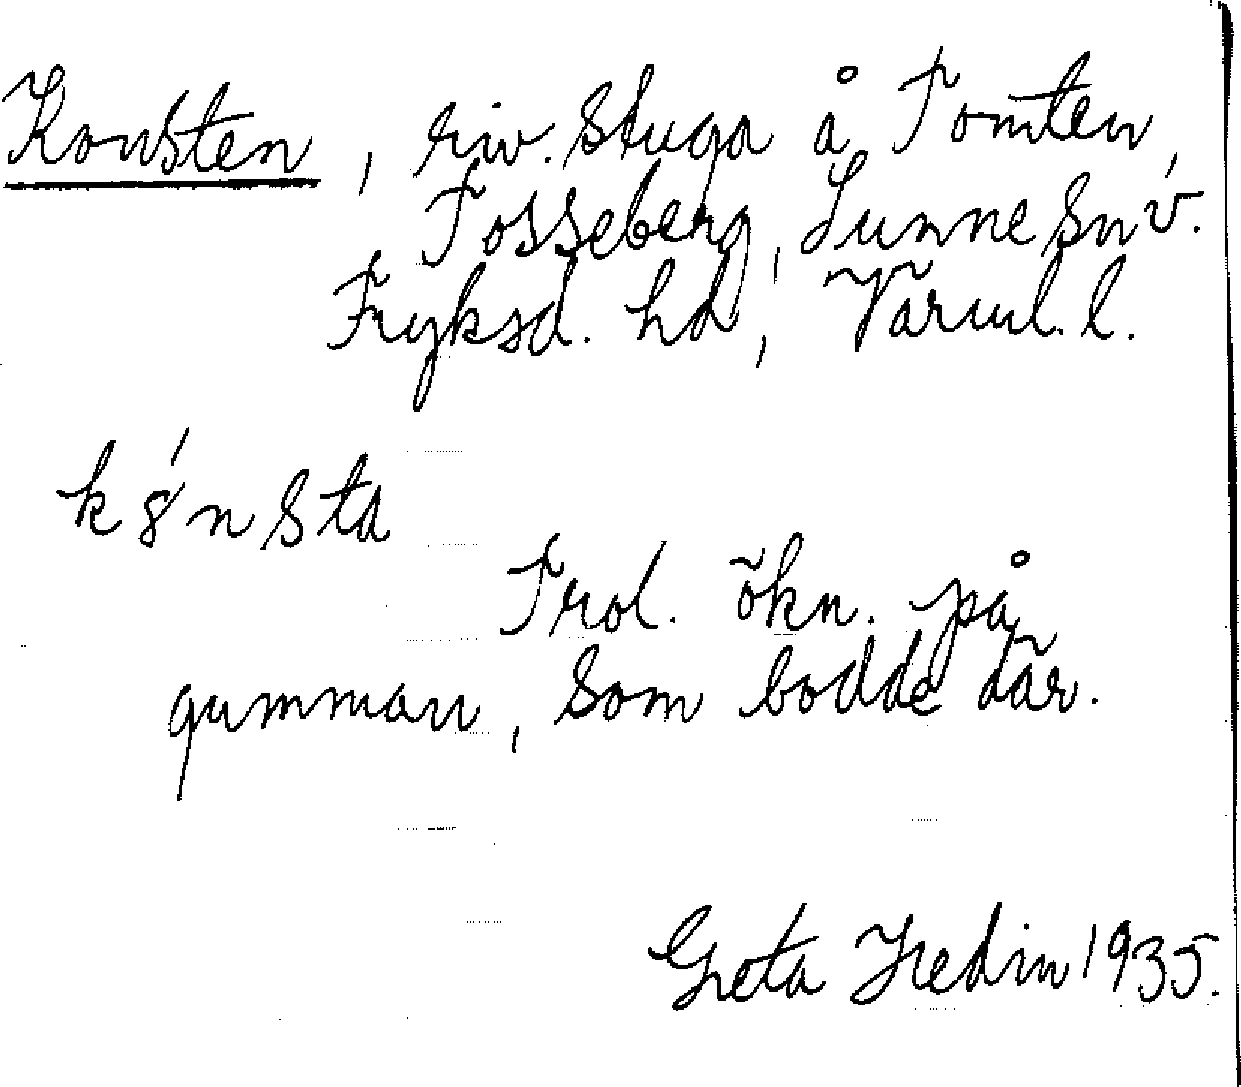 Konsten, riv. stuga å Tomten,
Fosseberg, Sunne sn v.
Fryksd. hd, Värml. l.
kǿnsta
Trol. ökn. på
gumman, som bodde där.
Greta Hedin 1935.